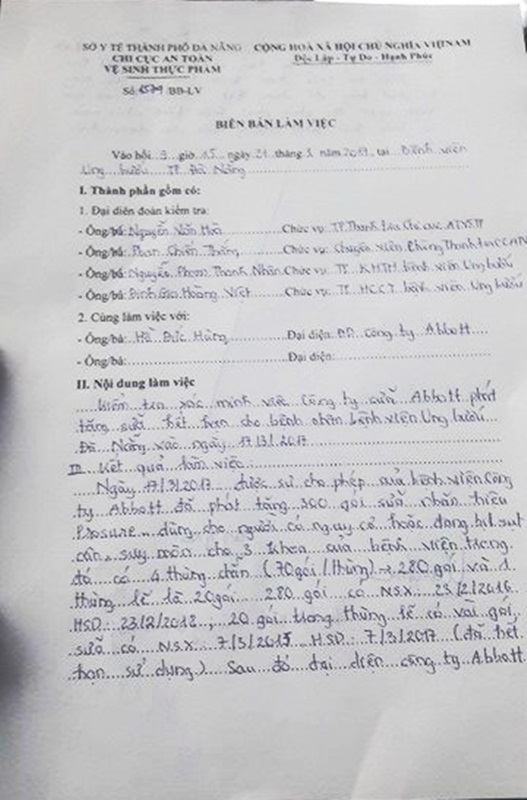 SỞ Y TẾ THÀNH PHỐ ĐÀ NẴNG CỘNG HOÀ XÃ HỘI CHỦ NGHĨA VIỆT NAM
CHI CỤC AN TOÀN Độc Lập - Tự Do - Hạnh Phúc
VỆ SINH THỰC PHẨM
Số: /BB-LV
BIÊN BẢN LÀM VIỆC
Vào hồi 9 giờ 15 ngày 21 tháng 3 năm 2017, tại Bệnh viện
Ung bướu TP Đà Nẵng
I. Thành phần gồm có:
1. Đại diện đoàn kiểm tra:
- Ông/bà: Nguyễn Văn Hòa Chức vụ: TP Thanh tra Chi cục ATVSTP
- Ông/bà: Phan Chiến Thắng Chức vụ: Chuyên viên phòng Thanh tra CCATVSTP
- Ông/bà: Nguyễn Phạm Thanh Nhân Chức vụ: TP KHTH bệnh viện Ung bướu
- Ông/bà: Đinh Gia Hoàng Việt Chức vụ: TP HCCT bệnh viện Ung bướu
2. Cùng làm việc với:
- Ông/bà: Hồ Đức Hùng Đại diện: Công ty Abbott
- Ông/bà: Đại diện:
II. Nội dung làm việc
Kiểm tra xác minh việc Công ty sữa Abbott phát
tặng sữa hết hạn cho bệnh nhân bệnh viện Ung bướu
Đà Nẵng vào ngày 17/3/2017
III. Kết quả làm việc:
Ngày 17/3/2017 được sự cho phép của bệnh viện Công
ty Abbott đã phát tặng 300 gói sữa nhãn hiệu
Prosure dùng cho người có nguy cơ hoặc đang bị sụt
cân, suy mòn cho 3 khoa của bệnh viện trong
đó có 4 thùng chẵn (70 gói/thùng) → 280 gói và 1
thùng lẽ là 20 gói. 280 gói có NSX: 23/2/2016
HSD: 23/2/2018, 20 gói trong thùng lẽ có vài gói
sữa có NSX: 7/3/2015 HSD: 7/3/2017 (đã hết
hạn sử dụng). Sau đó đại diện công ty Abbott